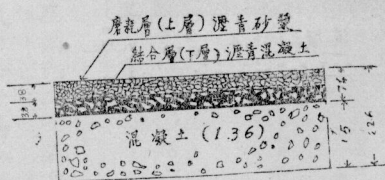 磨耗層(上層)瀝青砂漿
結合層(下層)瀝青混凝土
混凝土(1.36)
3.8
3.8
7.6
15